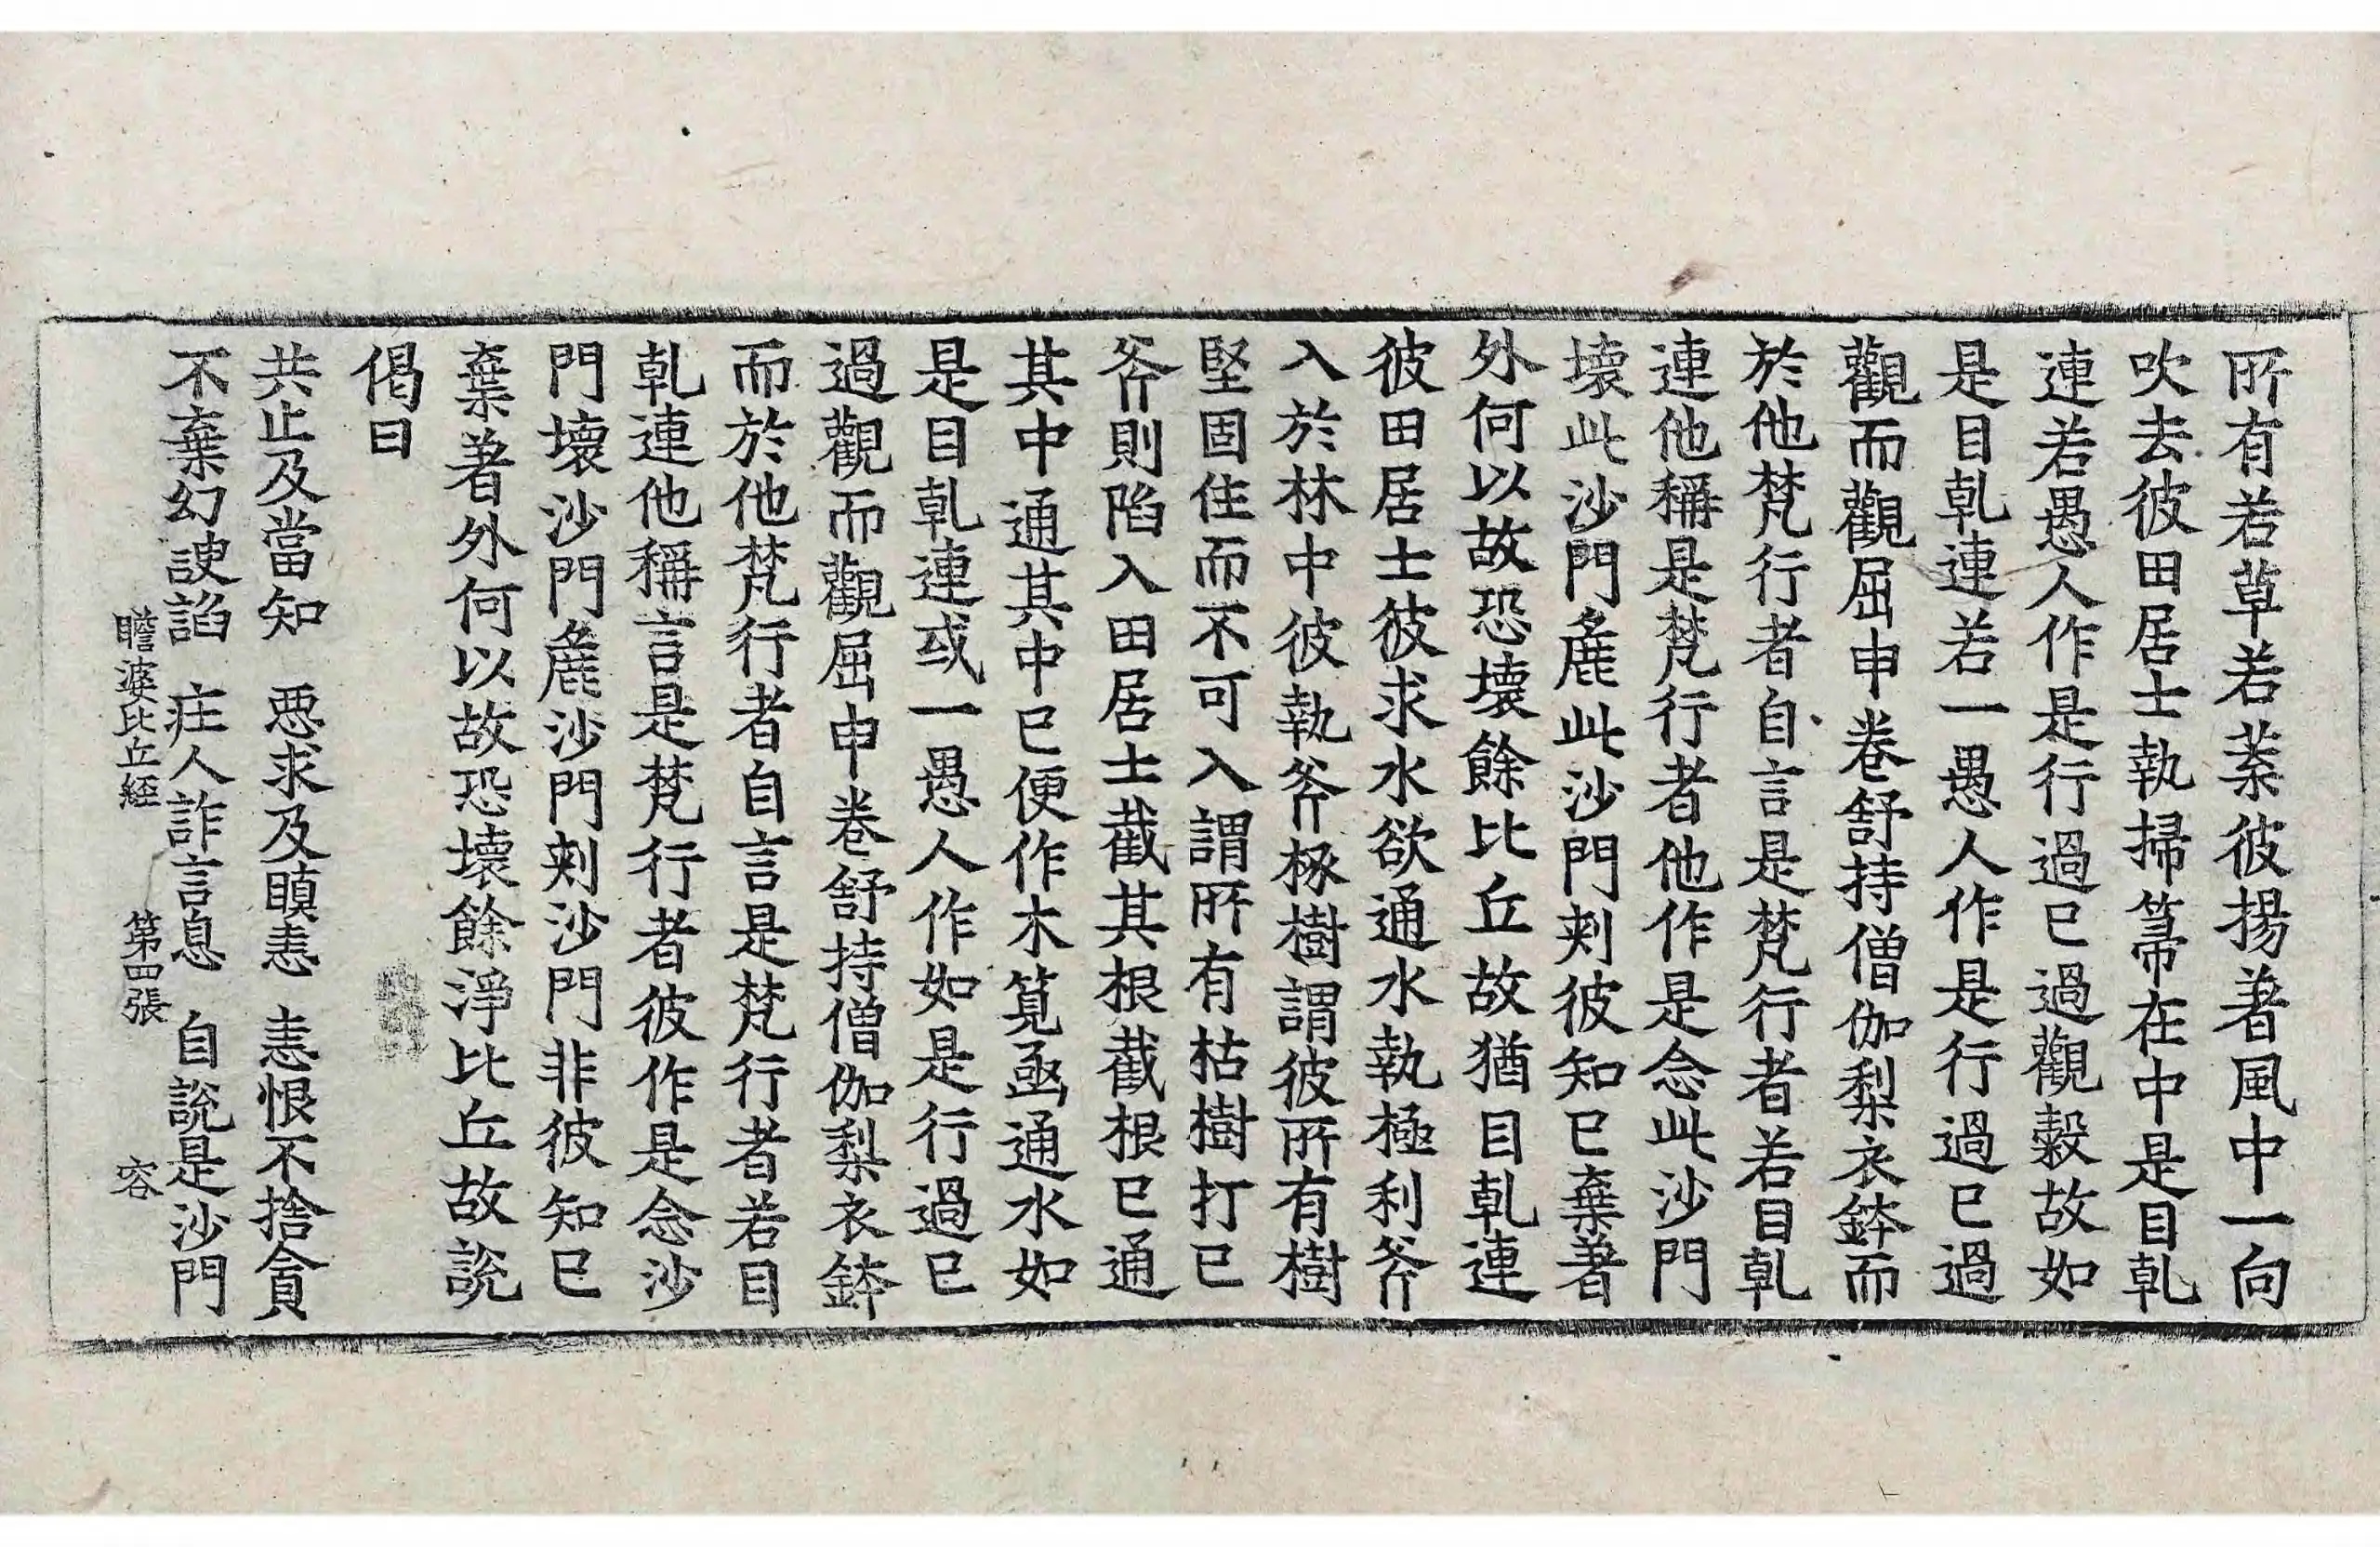 所有若草若䒷彼揚著風中一向
吹去彼田居士執掃箒在中是目乹
連若愚人作是行過已過觀縠故如
是目乹連若一愚人作是行過已過
觀而觀屈申卷舒持僧伽梨衣鉢而
於他梵行者自言是梵行者若目乹
連他稱是梵行者他作是念此沙門
壞此沙門麁此沙門刺彼知已棄著
外何以故恐壞餘比丘故猶目乹連
彼田居士彼求水欲通水執極利斧
入於林中彼執斧椓樹謂彼所有樹
堅固住而不可入謂所有枯樹打已
斧則陷入田居士截其根截根已通
其中通其中已便作木筧凾通水如
是目乹連或一愚人作如是行過已
過觀而觀屈申卷舒持僧伽梨衣鉢
而於他梵行者自言是梵行者若目
乹連他稱言是梵行者彼作是念沙
門壞沙門麁沙門刺沙門非彼知已
棄著外何以故恐壞餘淨比丘故說
偈曰
共止及當知　惡求及瞋恚　恚恨不捨貪
不棄幻諛諂　疰人詐言息　自說是沙門
瞻婆比丘經　第四張　容